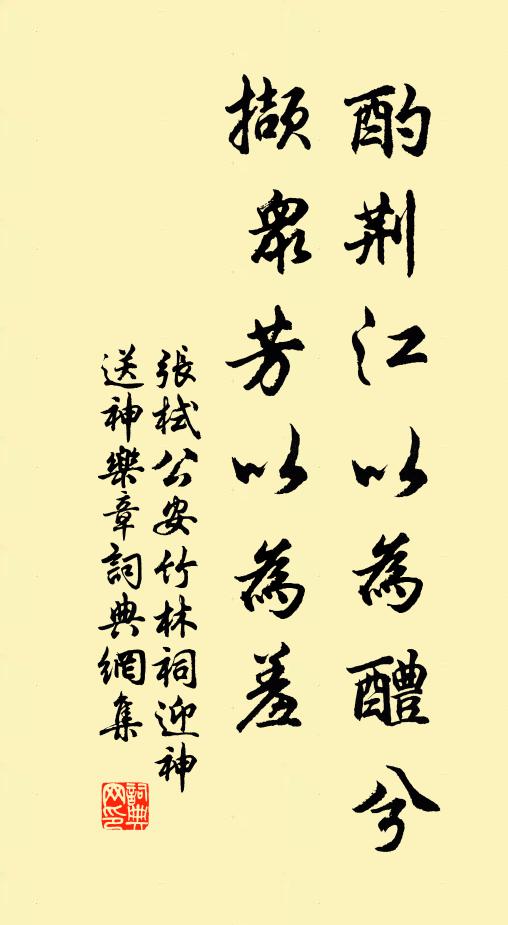 酌荆江以為醴兮
擷眾芳以為羞
張栻公安竹林祠迎神
送神樂章詞典網集
詞典
网印